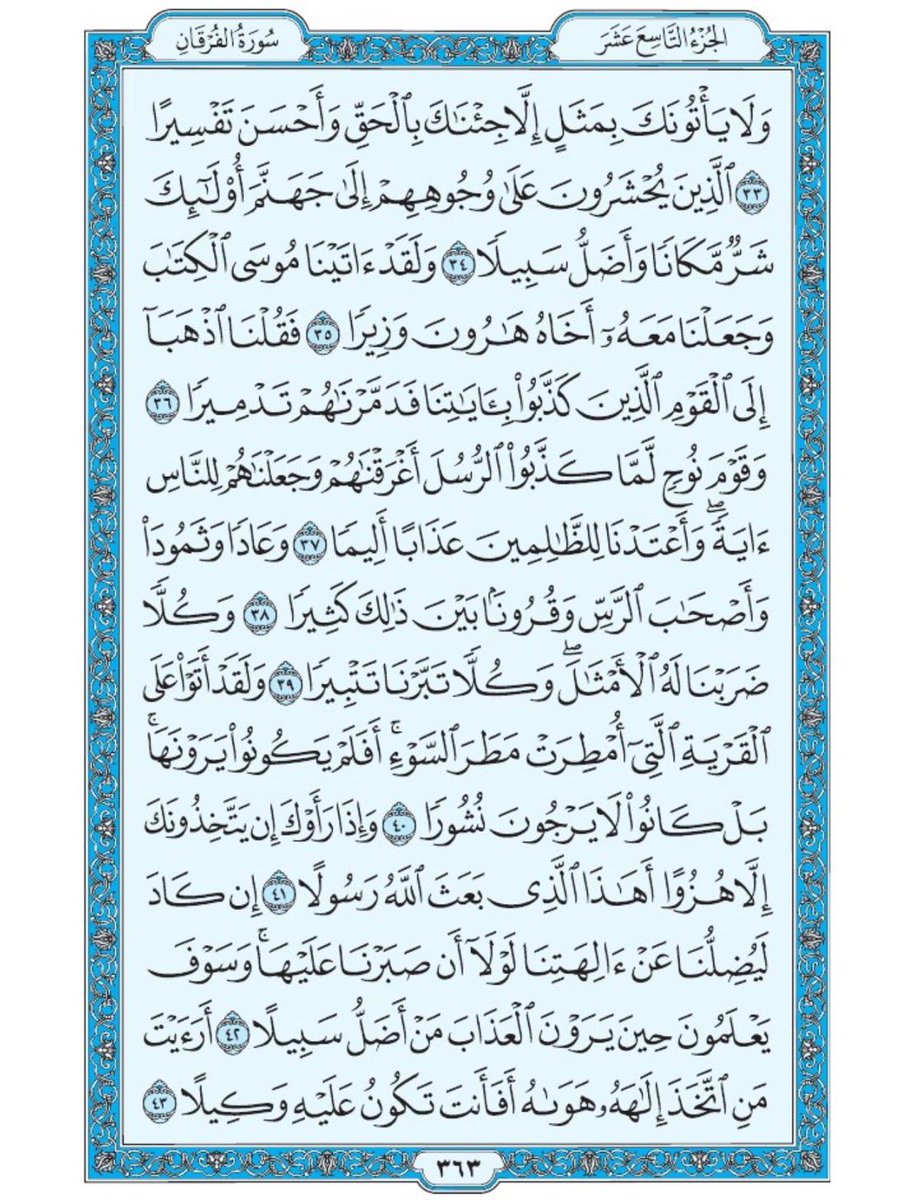 الجُزْءُ التَّاسِعَ عَشَرَ
سُورَةُ الفُرْقَانِ
وَلَا يَأْتُونَكَ بِمَثَلٍ إِلَّا جِئْنَٰكَ بِٱلْحَقِّ وَأَحْسَنَ تَفْسِيرًا
٣٣ ٱلَّذِينَ يُحْشَرُونَ عَلَىٰ وُجُوهِهِمْ إِلَىٰ جَهَنَّمَ أُوْلَٰٓئِكَ
شَرٌّ مَّكَانًا وَأَضَلُّ سَبِيلًا ٣٤ وَلَقَدْ ءَاتَيْنَا مُوسَى ٱلْكِتَٰبَ
وَجَعَلْنَا مَعَهُۥٓ أَخَاهُ هَٰرُونَ وَزِيرًا ٣٥ فَقُلْنَا ٱذْهَبَآ
إِلَى ٱلْقَوْمِ ٱلَّذِينَ كَذَّبُوا۟ بِـَٔايَٰتِنَا فَدَمَّرْنَٰهُمْ تَدْمِيرًا ٣٦
وَقَوْمَ نُوحٍ لَّمَّا كَذَّبُوا۟ ٱلرُّسُلَ أَغْرَقْنَٰهُمْ وَجَعَلْنَٰهُمْ لِلنَّاسِ
ءَايَةً ۖ وَأَعْتَدْنَا لِلظَّٰلِمِينَ عَذَابًا أَلِيمًا ٣٧ وَعَادًا وَثَمُودَا۟
وَأَصْحَٰبَ ٱلرَّسِّ وَقُرُونًۢا بَيْنَ ذَٰلِكَ كَثِيرًا ٣٨ وَكُلًّا
ضَرَبْنَا لَهُ ٱلْأَمْثَٰلَ ۖ وَكُلًّا تَبَّرْنَا تَتْبِيرًا ٣٩ وَلَقَدْ أَتَوْا۟ عَلَى
ٱلْقَرْيَةِ ٱلَّتِىٓ أُمْطِرَتْ مَطَرَ ٱلسَّوْءِ ۚ أَفَلَمْ يَكُونُوا۟ يَرَوْنَهَا ۚ
بَلْ كَانُوا۟ لَا يَرْجُونَ نُشُورًا ٤٠ وَإِذَا رَأَوْكَ إِن يَتَّخِذُونَكَ
إِلَّا هُزُوًا أَهَٰذَا ٱلَّذِى بَعَثَ ٱللَّهُ رَسُولًا ٤١ إِن كَادَ
لَيُضِلُّنَا عَنْ ءَالِهَتِنَا لَوْلَآ أَن صَبَرْنَا عَلَيْهَا ۚ وَسَوْفَ
يَعْلَمُونَ حِينَ يَرَوْنَ ٱلْعَذَابَ مَنْ أَضَلُّ سَبِيلًا ٤٢ أَرَءَيْتَ
مَنِ ٱتَّخَذَ إِلَٰهَهُۥ هَوَىٰهُ أَفَأَنتَ تَكُونُ عَلَيْهِ وَكِيلًا ٤٣
٣٦٣